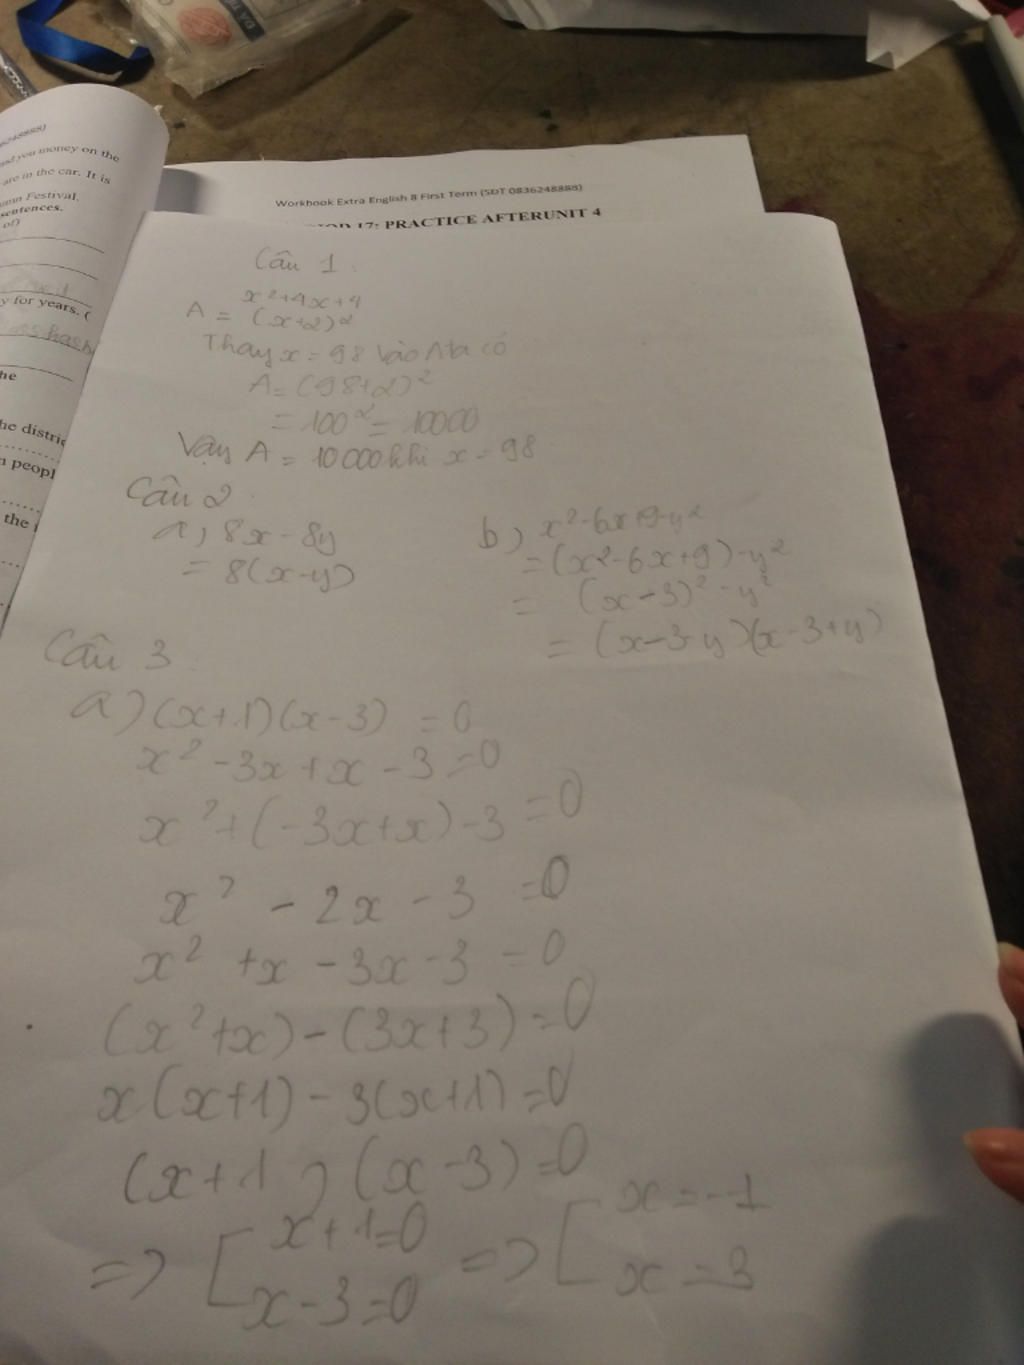 36248888)
and you money on the
are in the car. It is
Festival.
sentences.
of)
y for years. (
he
he distric
n peopl
the
Workbook Extra English 8 First Term (SDT 0836248888)
17: PRACTICE AFTERUNIT 4
Câu 1.
x²+4x+4
A = (x+2)²
Thay x = 98 vào A ta có
A = (98+2)²
= 100² = 10000
Vậy A = 10000 khi x = 98
Câu 2.
a) 8x - 8y
= 8(x-y)
b) x²-6x+9-y²
= (x²-6x+9)-y²
= (x-3)²-y²
= (x-3-y)(x-3+y)
Câu 3.
a) (x+1)(x-3) = 0
x² -3x+x -3 =0
x²+(-3x+x)-3 =0
x² - 2x - 3 =0
x² +x - 3x -3 =0
(x²+x)-(3x+3)=0
x(x+1)-3(x+1)=0
(x+1)(x-3)=0
=> [ x+1=0 => [ x=-1
x-3=0 x=3